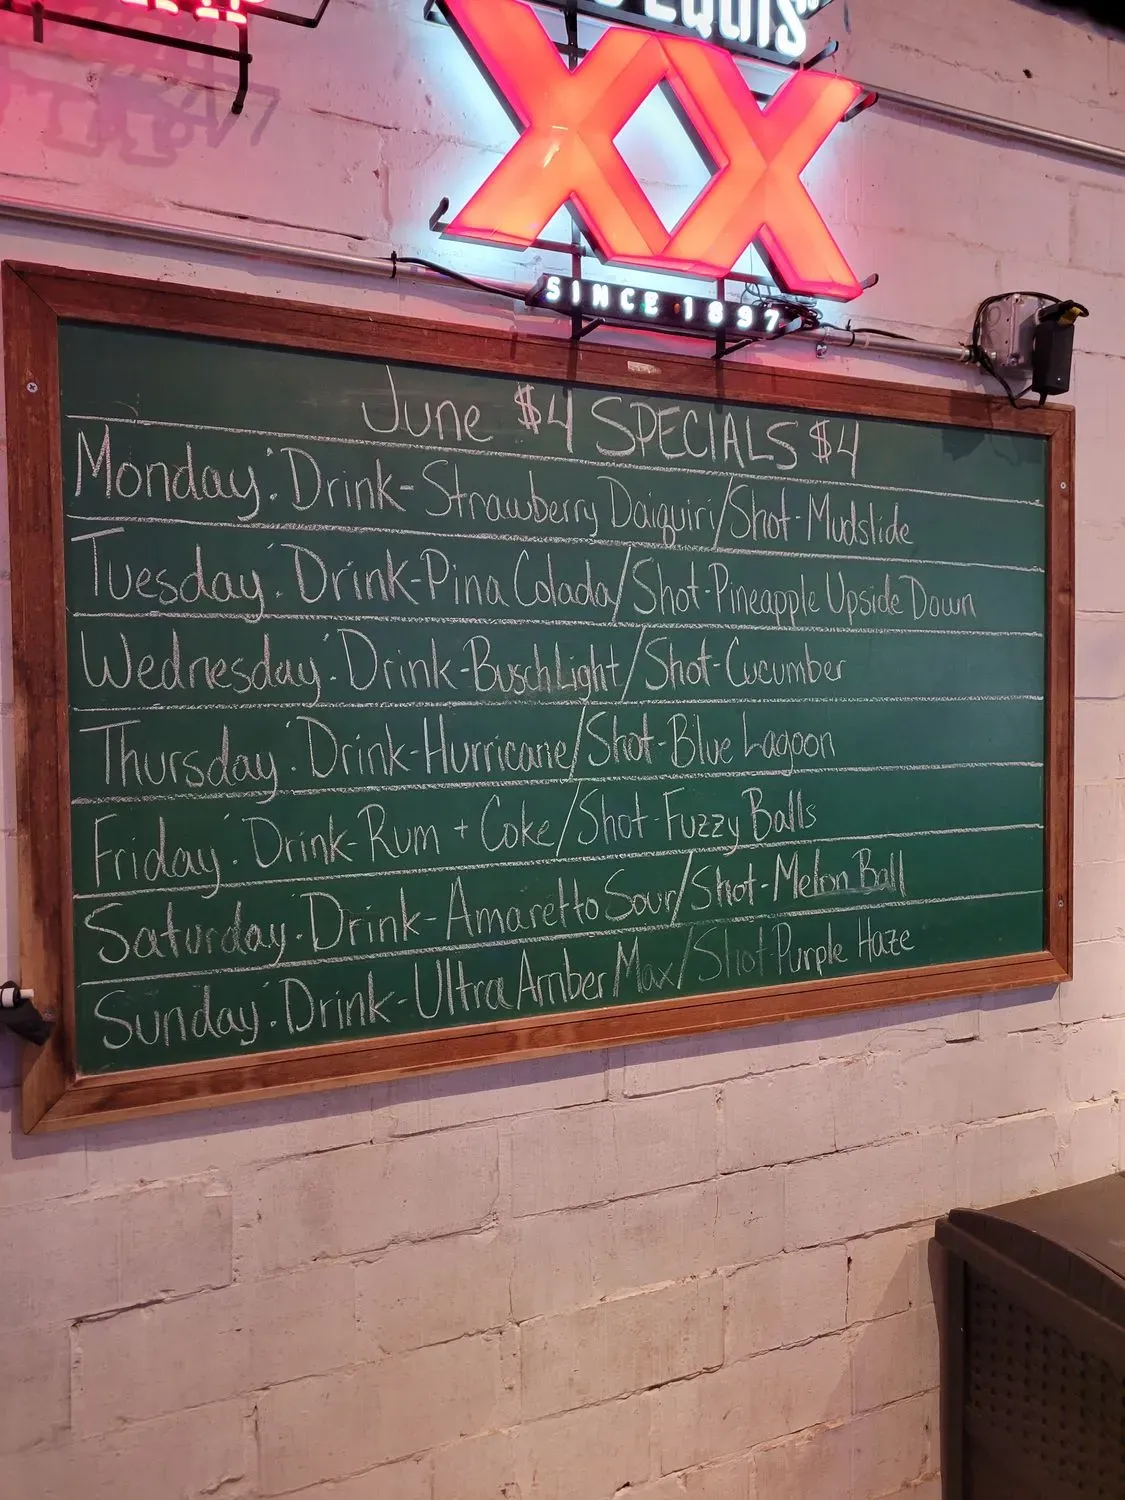 EQUIS
XX
SINCE 1897
June $4 SPECIALS $4
Monday: Drink- Strawberry Daiquiri/Shot- Mudslide
Tuesday: Drink-Pina Colada/Shot-Pineapple Upside Down
Wednesday: Drink-Busch Light/Shot-Cucumber
Thursday: Drink-Hurricane/Shot-Blue Lagoon
Friday: Drink-Rum + Coke/Shot-Fuzzy Balls
Saturday: Drink-Amaretto Sour/Shot-Melon Ball
Sunday: Drink-Ultra Amber Max/Shot-Purple Haze